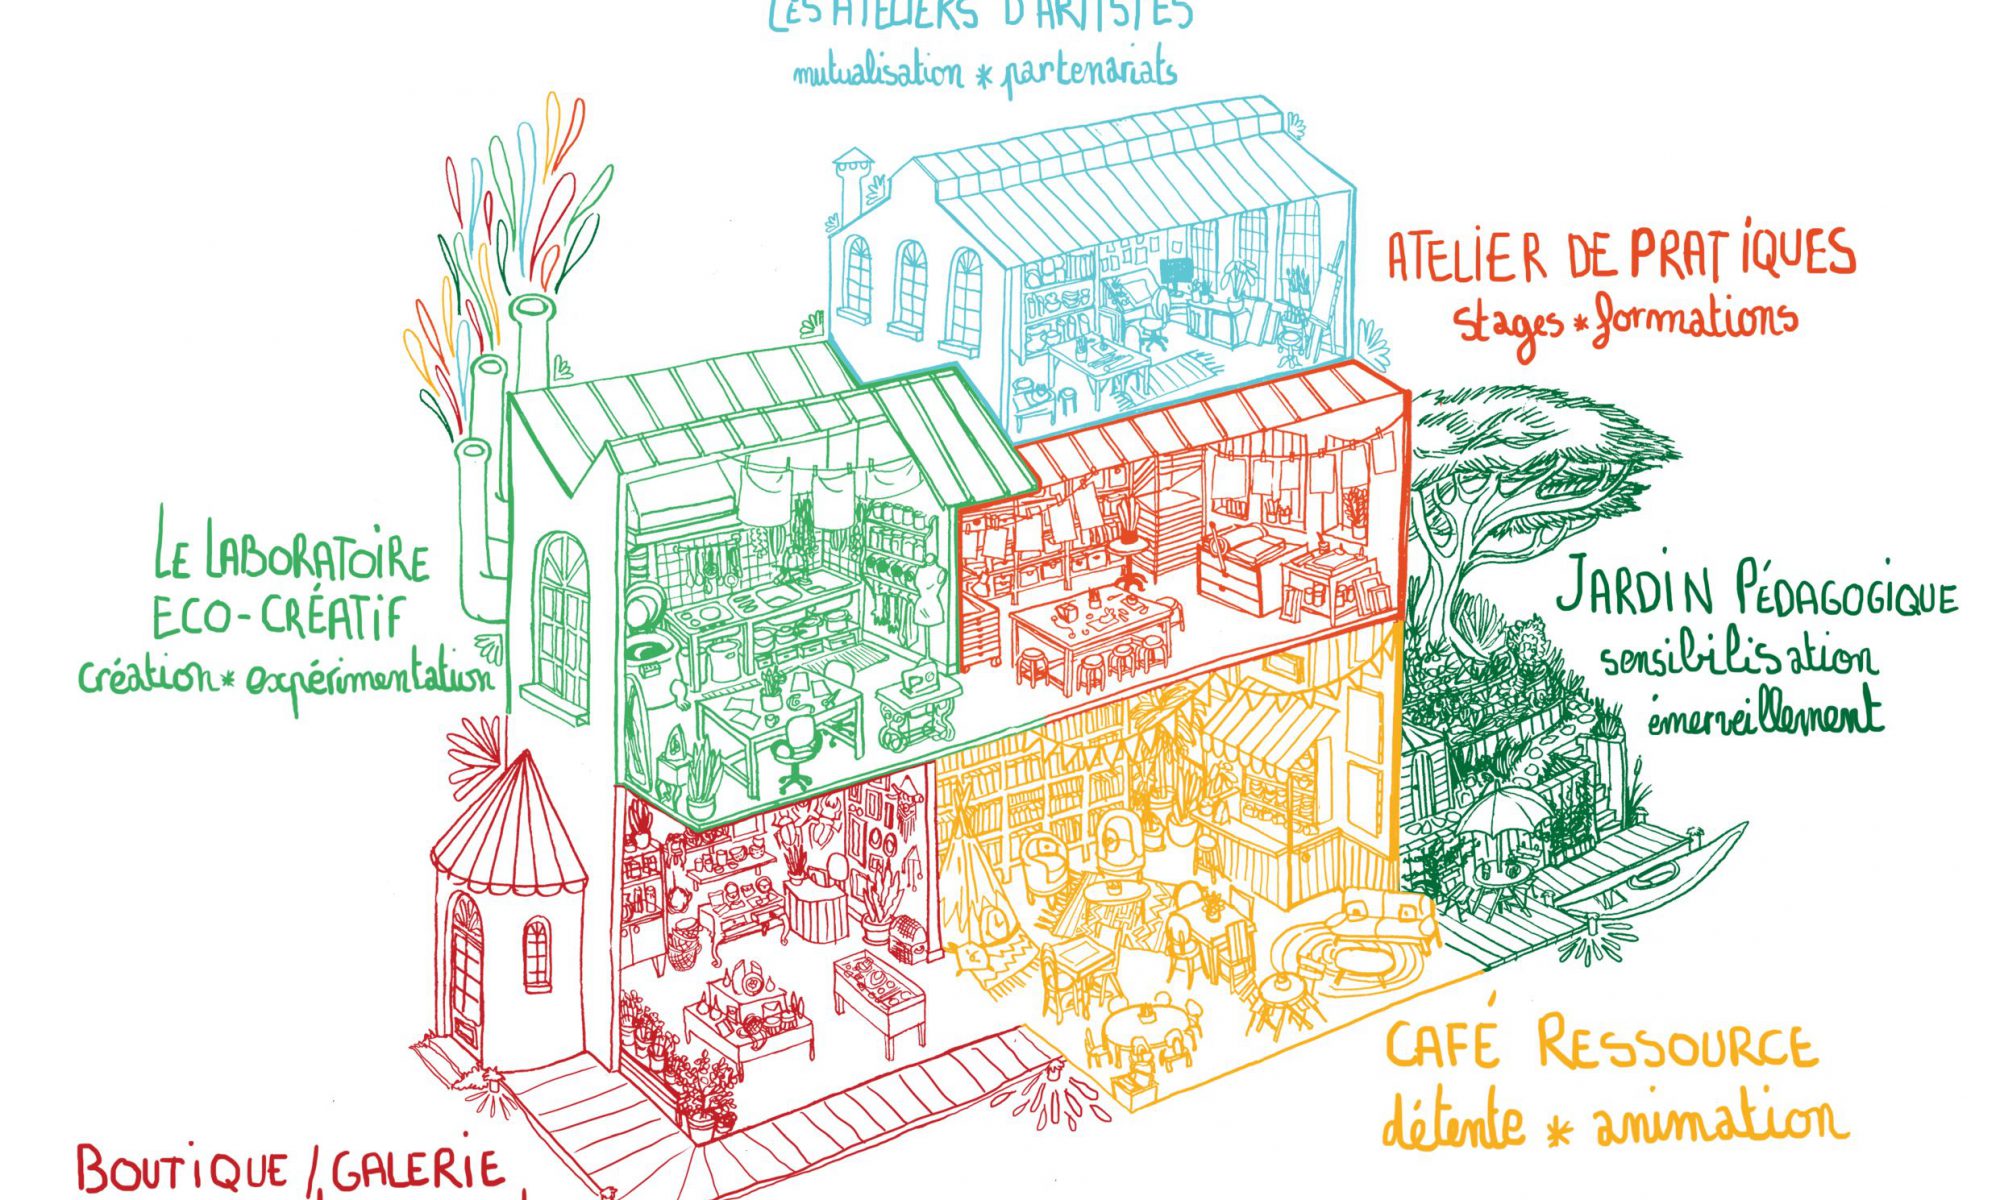 LES ATELIERS D'ARTISTES
mutualisation * partenariats
ATELIER DE PRATIQUES
stages * formations
LE LABORATOIRE
ECO-CRÉATIF
création * expérimentation
JARDIN PÉDAGOGIQUE
sensibilisation
émerveillement
CAFÉ RESSOURCE
détente * animation
BOUTIQUE / GALERIE